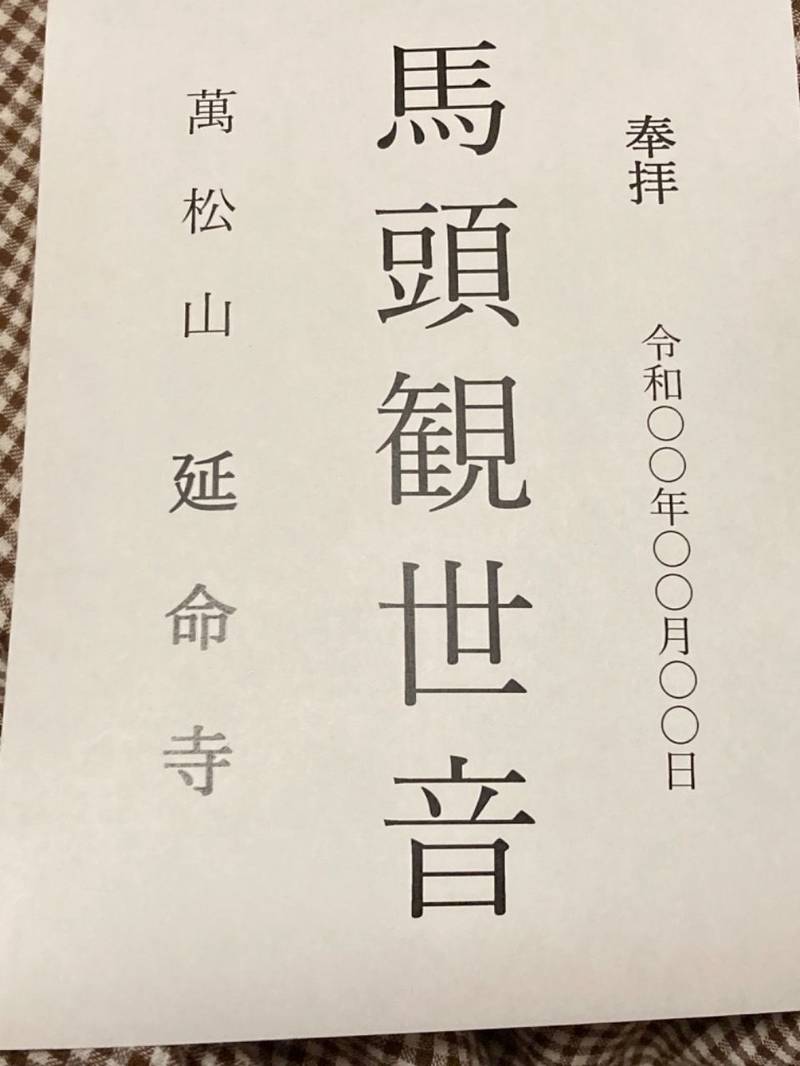 奉拝 令和〇〇年〇〇月〇〇日
馬頭観世音
萬松山 延命寺